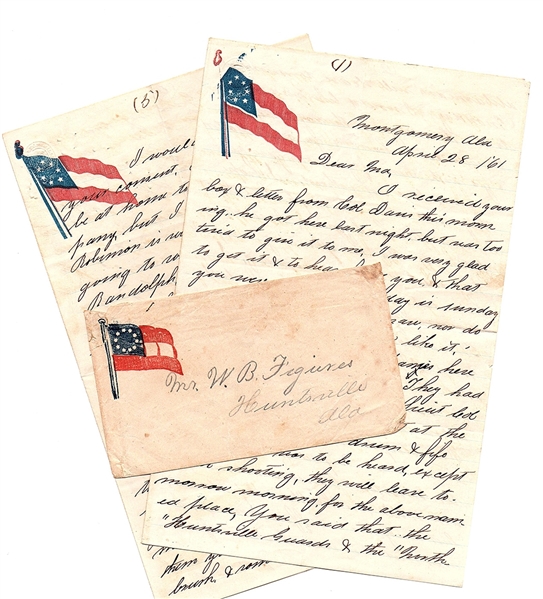 (1)
Montgomery Ala
April 28 '61
Dear Ma,
I received your
box & letter from Col Davis this morn
ing. he got here last night, but was too
tired to give it to me, I was very glad
to get it & to hear you & that
you were day is sunday
nor do
like it.
here
They had
Col
at the
drum & fife
was to be heard, except
shooting, they will leave to-
morrow morning, for the above nam
ed place, You said that the
"Huntsville Guards & the "North
(5)
I would
your consent,
be at home to
pany, but I
Robinson is
going to
Randolph
them
brush &
Mr. W. B. Figures
Huntsville
Ala